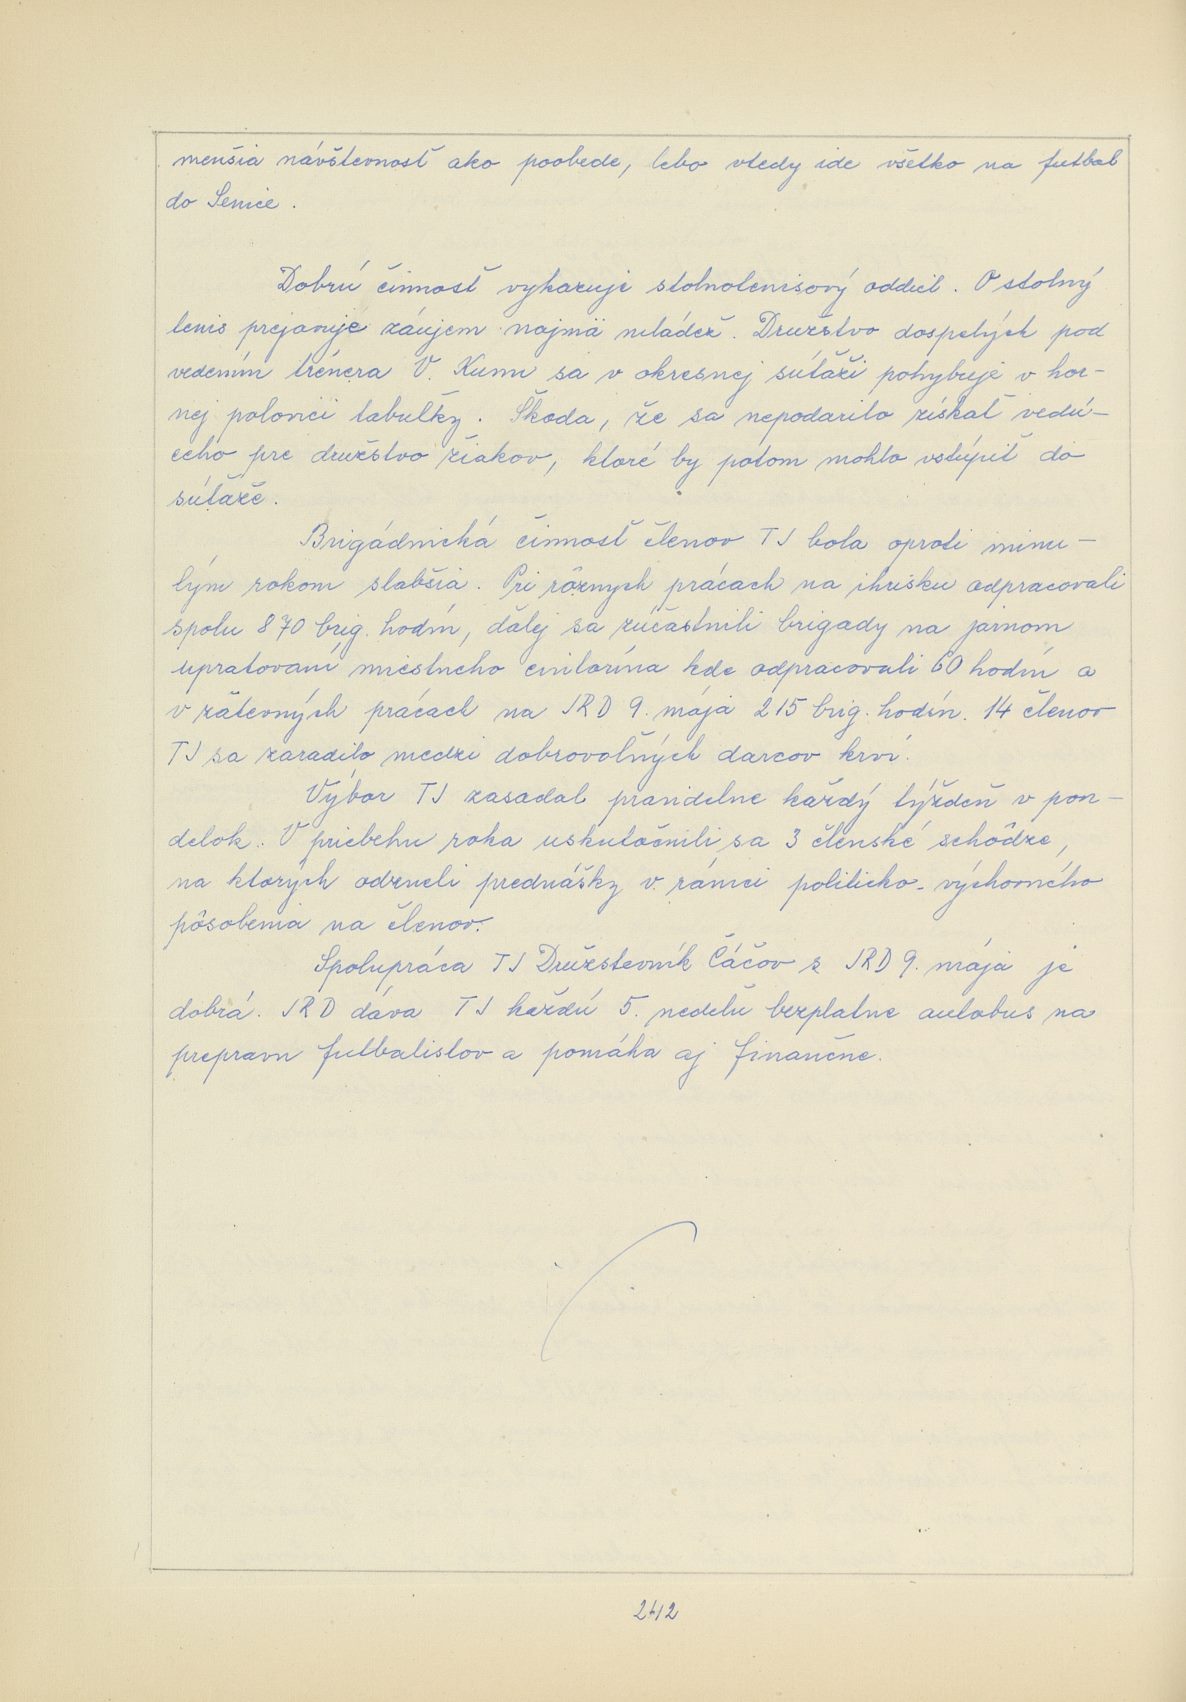 menšia návštevnosť ako poobede, lebo vtedy ide všetko na futbal
do Senice.
Dobrú činnosť vykazuje stolnotenisový oddiel. O stolný
tenis prejavuje záujem najmä mládež. Družstvo dospelých pod
vedením trénera V. Kumu sa v okresnej súťaži pohybuje v hor-
nej polovici tabuľky. Škoda, že sa nepodarilo získať vedú-
ceho pre družstvo žiakov, ktoré by potom mohlo vstúpiť do
súťaže.
Brigádnická činnosť členov TJ bola oproti minu-
lým rokom slabšia. Pri rôznych prácach na ihrisku odpracovali
spolu 870 brig. hodín, ďalej sa zúčastnili brigady na jarnom
upratovaní miestneho cintorína kde odpracovali 60 hodín a
v žatevných prácach na JRD 9. mája 215 brig. hodín. 14 členov
TJ sa zaradilo medzi dobrovoľných darcov krvi.
Výbor TJ zasadal pravidelne každý týždeň v pon-
delok. V priebehu roka uskutočnili sa 3 členské schôdze,
na ktorých odzneli prednášky v rámci politicko-výchovného
pôsobenia na členov.
Spolupráca TJ Družstevník Čáčov s JRD 9. mája je
dobrá. JRD dáva TJ každú 5. nedeľu bezplatne autobus na
prepravu futbalistov a pomáha aj finančne.
242